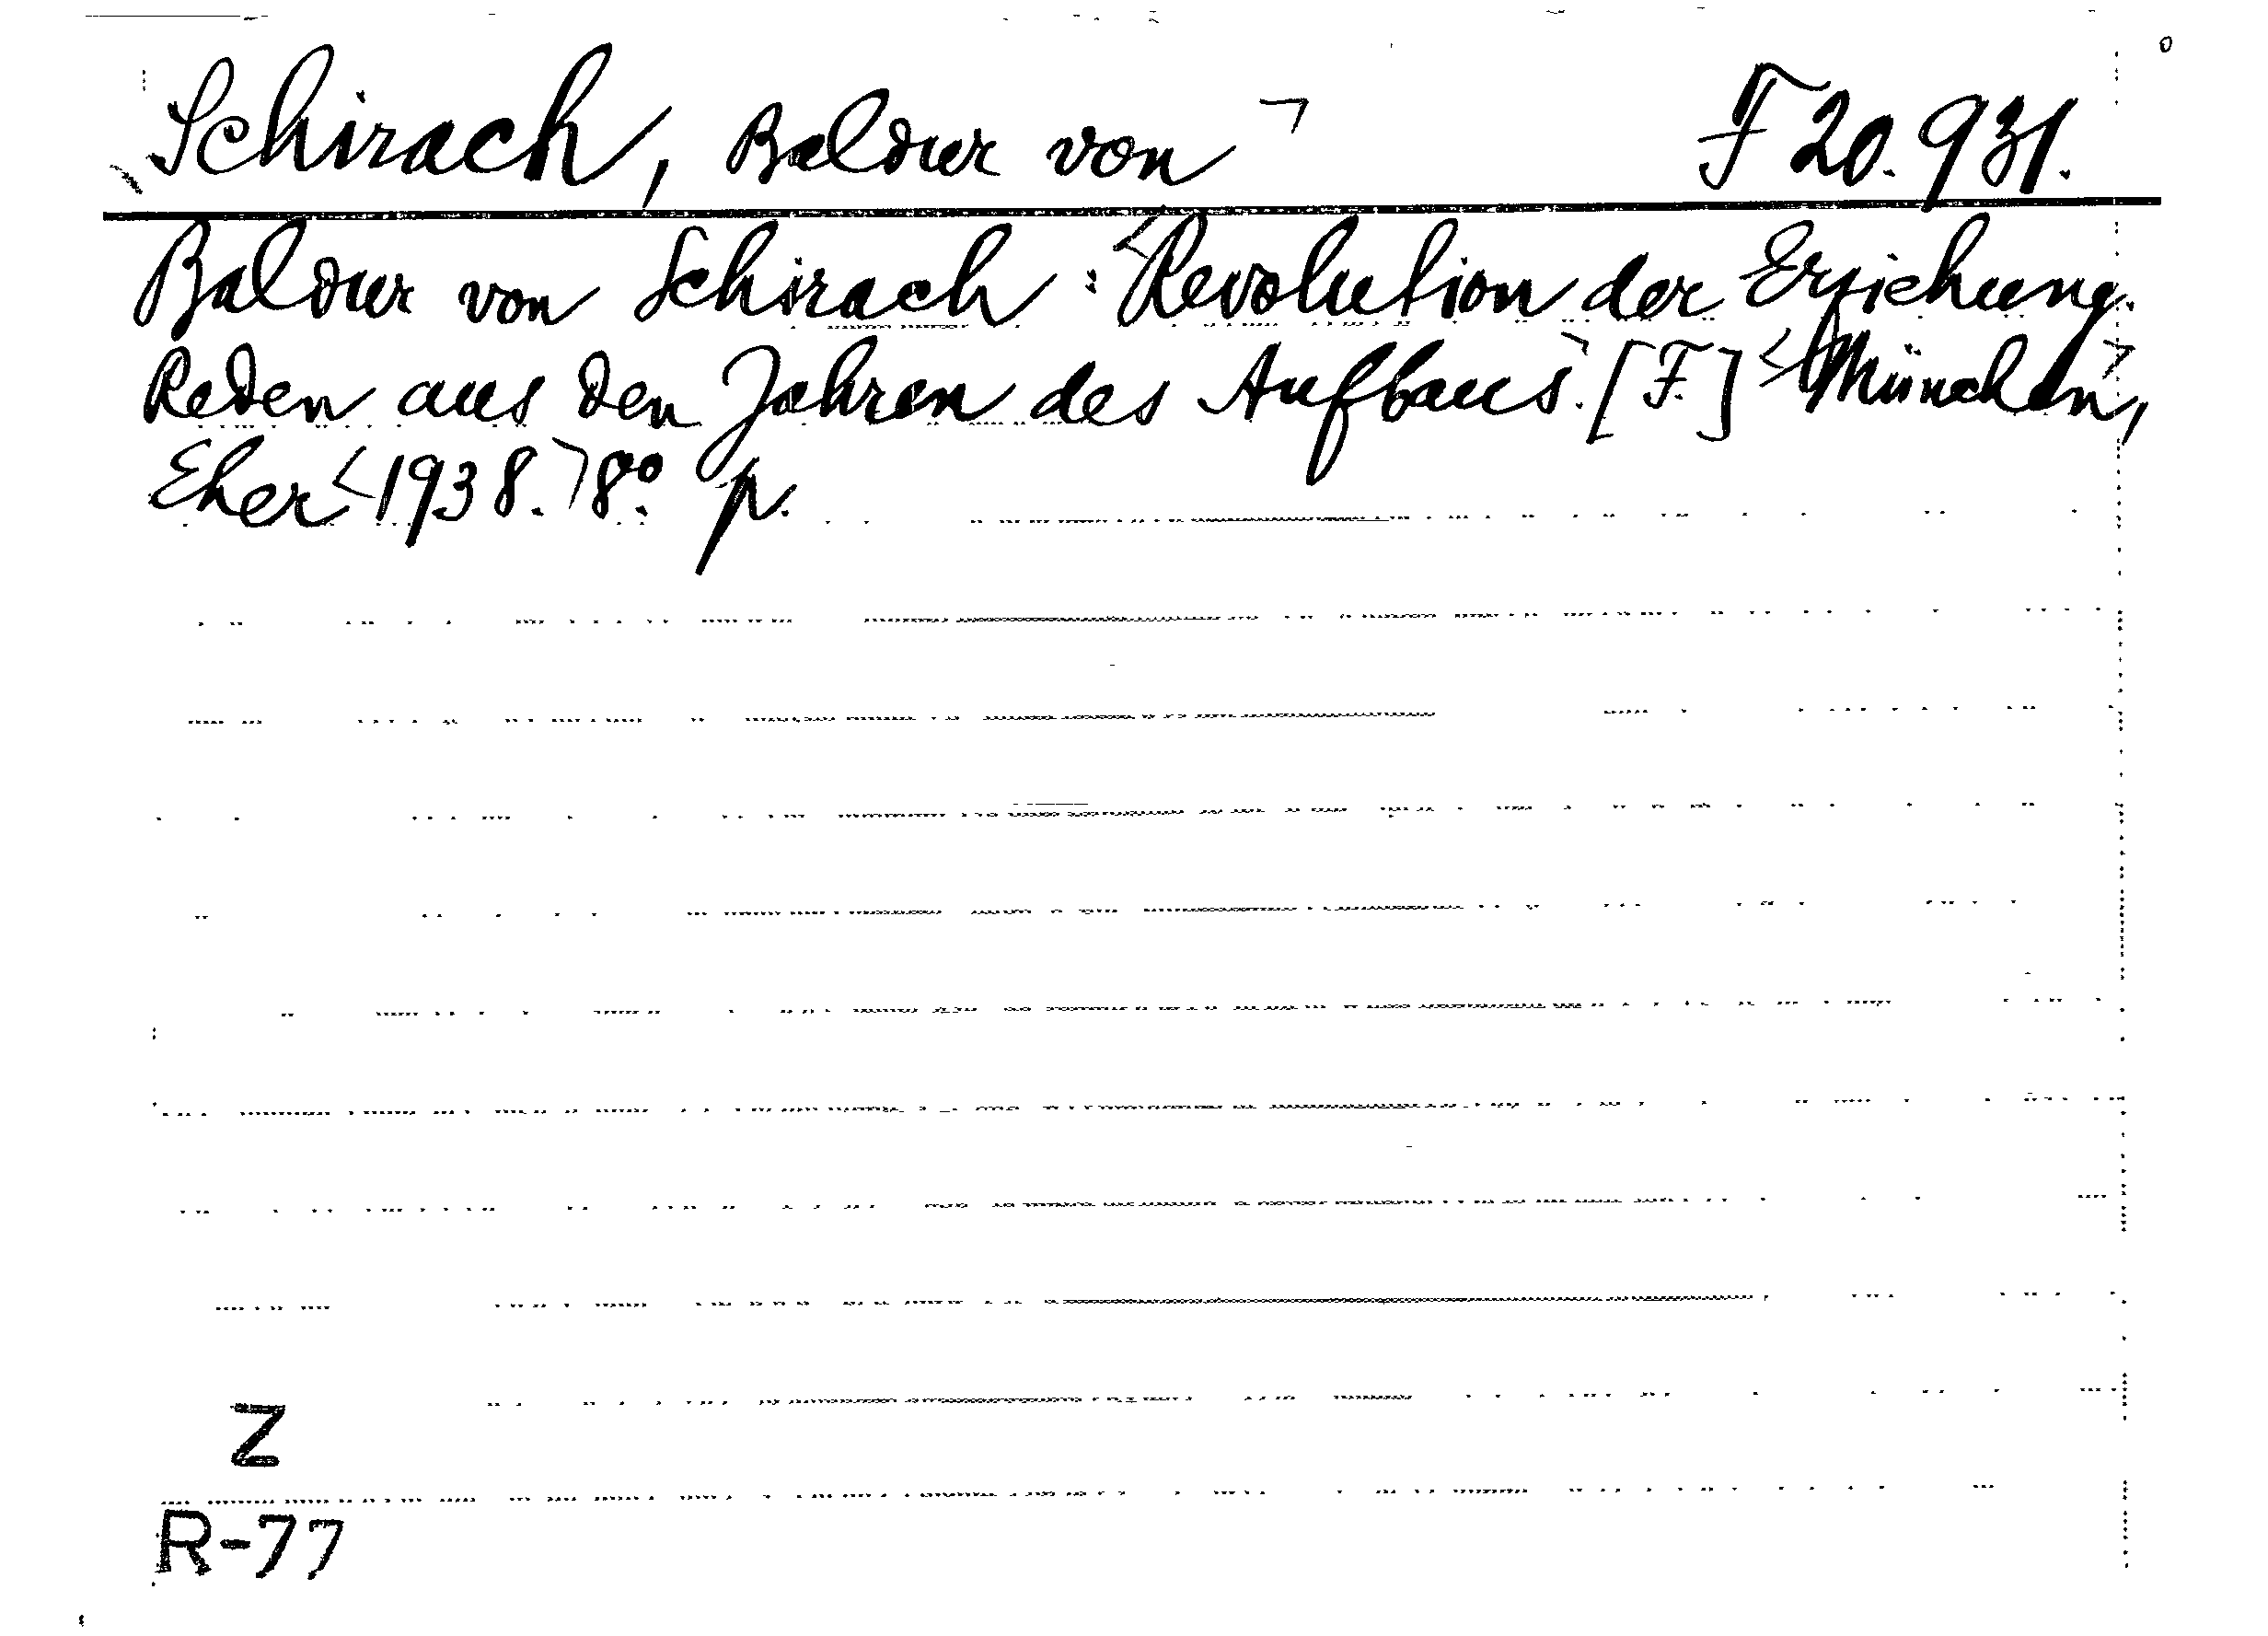 Schirach, Baldur von ㄱ F 20.931.
Baldur von Schirach: <Revolution der Erziehung.
Reden aus den Jahren des Aufbaus.> [F.] <München>,
Eher <1938.> 8° p.
Z
R-77